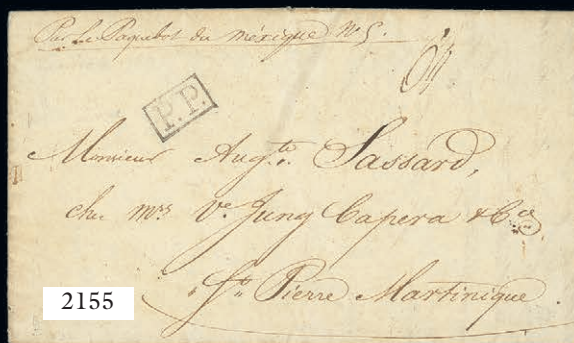 Par le Paquebot du méxique No 5.
P.P.
Monsieur Augte. Sassard,
chez mrs. Ve. Jung Capera & Cie
St. Pierre Martinique.
2155